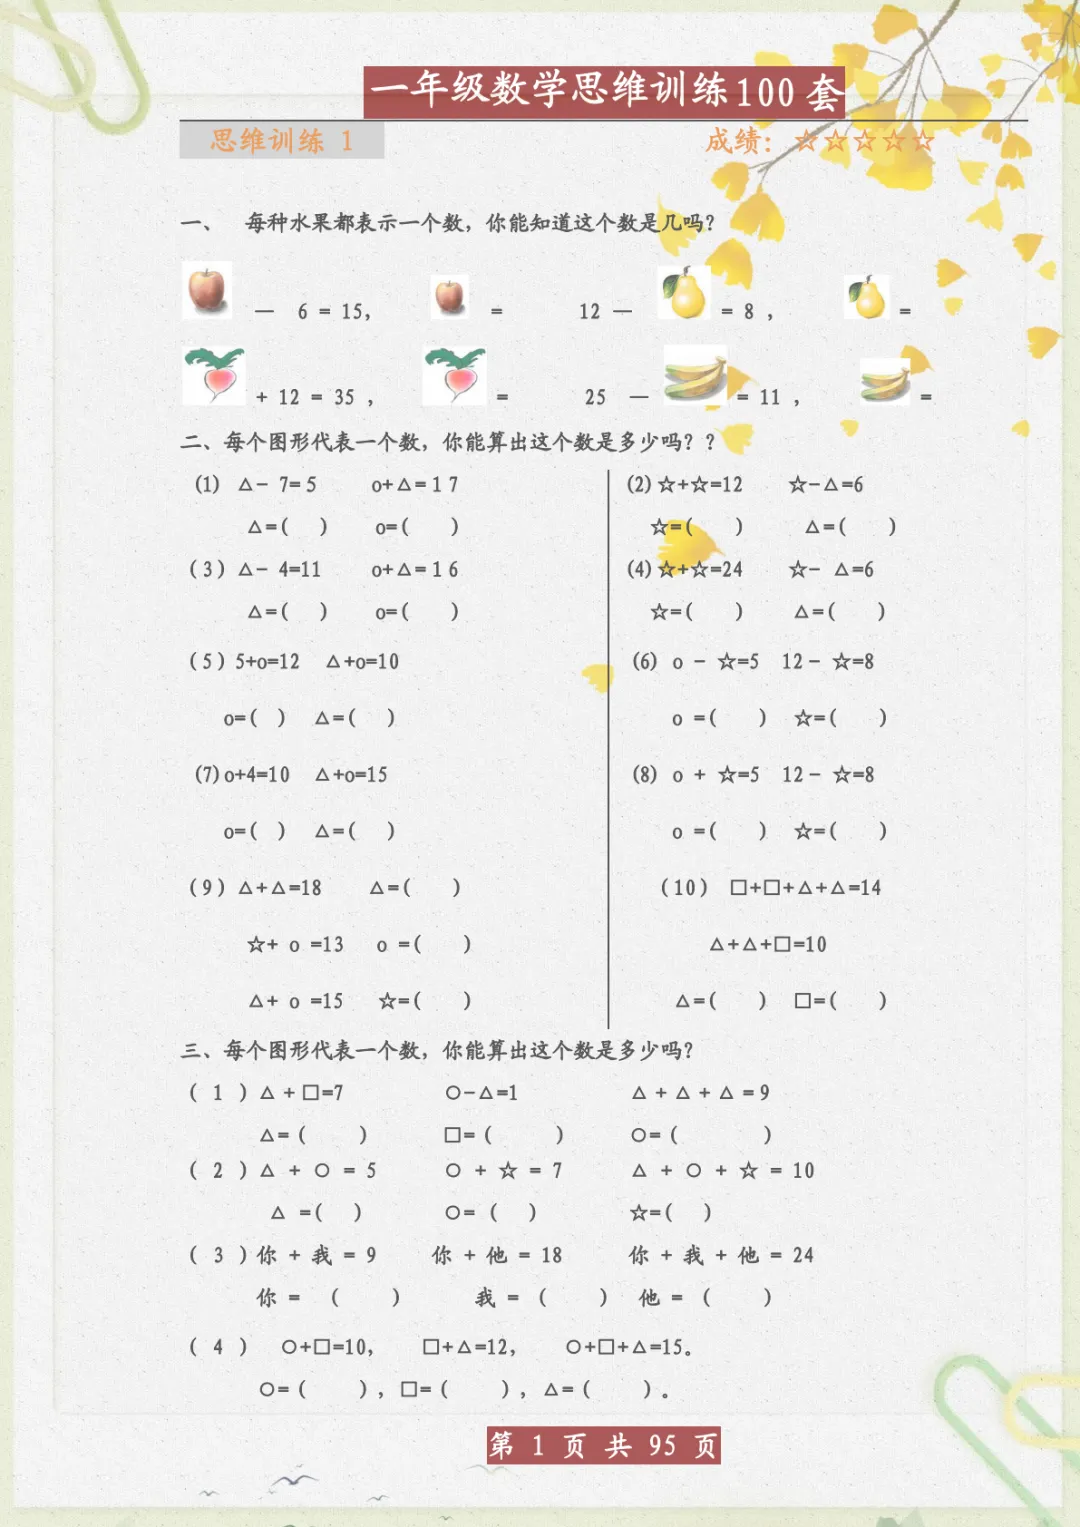 一年级数学思维训练100 套
思维训练 1 成绩：☆☆☆☆☆
一、 每种水果都表示一个数，你能知道这个数是几吗？
— 6 = 15， = 12 — = 8 ， =
+ 12 = 35 ， = 25 — = 11 ， =
二、每个图形代表一个数，你能算出这个数是多少吗？？
(1) △- 7= 5 o+△=1 7
△=( ) o=( )
(2)☆+☆=12 ☆-△=6
☆=( ) △=( )
(3)△- 4=11 o+△=1 6
△=( ) o=( )
(4)☆+☆=24 ☆- △=6
☆=( ) △=( )
(5)5+o=12 △+o=10
o=( ) △=( )
(6) o - ☆=5 12- ☆=8
o =( ) ☆=( )
(7)o+4=10 △+o=15
o=( ) △=( )
(8) o + ☆=5 12- ☆=8
o =( ) ☆=( )
(9)△+△=18 △=( )
☆+ o =13 o =( )
△+ o =15 ☆=( )
(10) □+□+△+△=14
△+△+□=10
△=( ) □=( )
三、每个图形代表一个数，你能算出这个数是多少吗？
( 1 )△+□=7 ○-△=1 △+△+△=9
△=( ) □=( ) ○=( )
( 2 )△ + ○ = 5 ○ + ☆ = 7 △ + ○ + ☆ = 10
△ =( ) ○= ( ) ☆=( )
( 3 )你 + 我 = 9 你 + 他 = 18 你 + 我 + 他 = 24
你 = ( ) 我 = ( ) 他 = ( )
( 4 ) ○+□=10， □+△=12， ○+□+△=15。
○=( )，□=( )，△=( )。
第 1 页 共 95 页